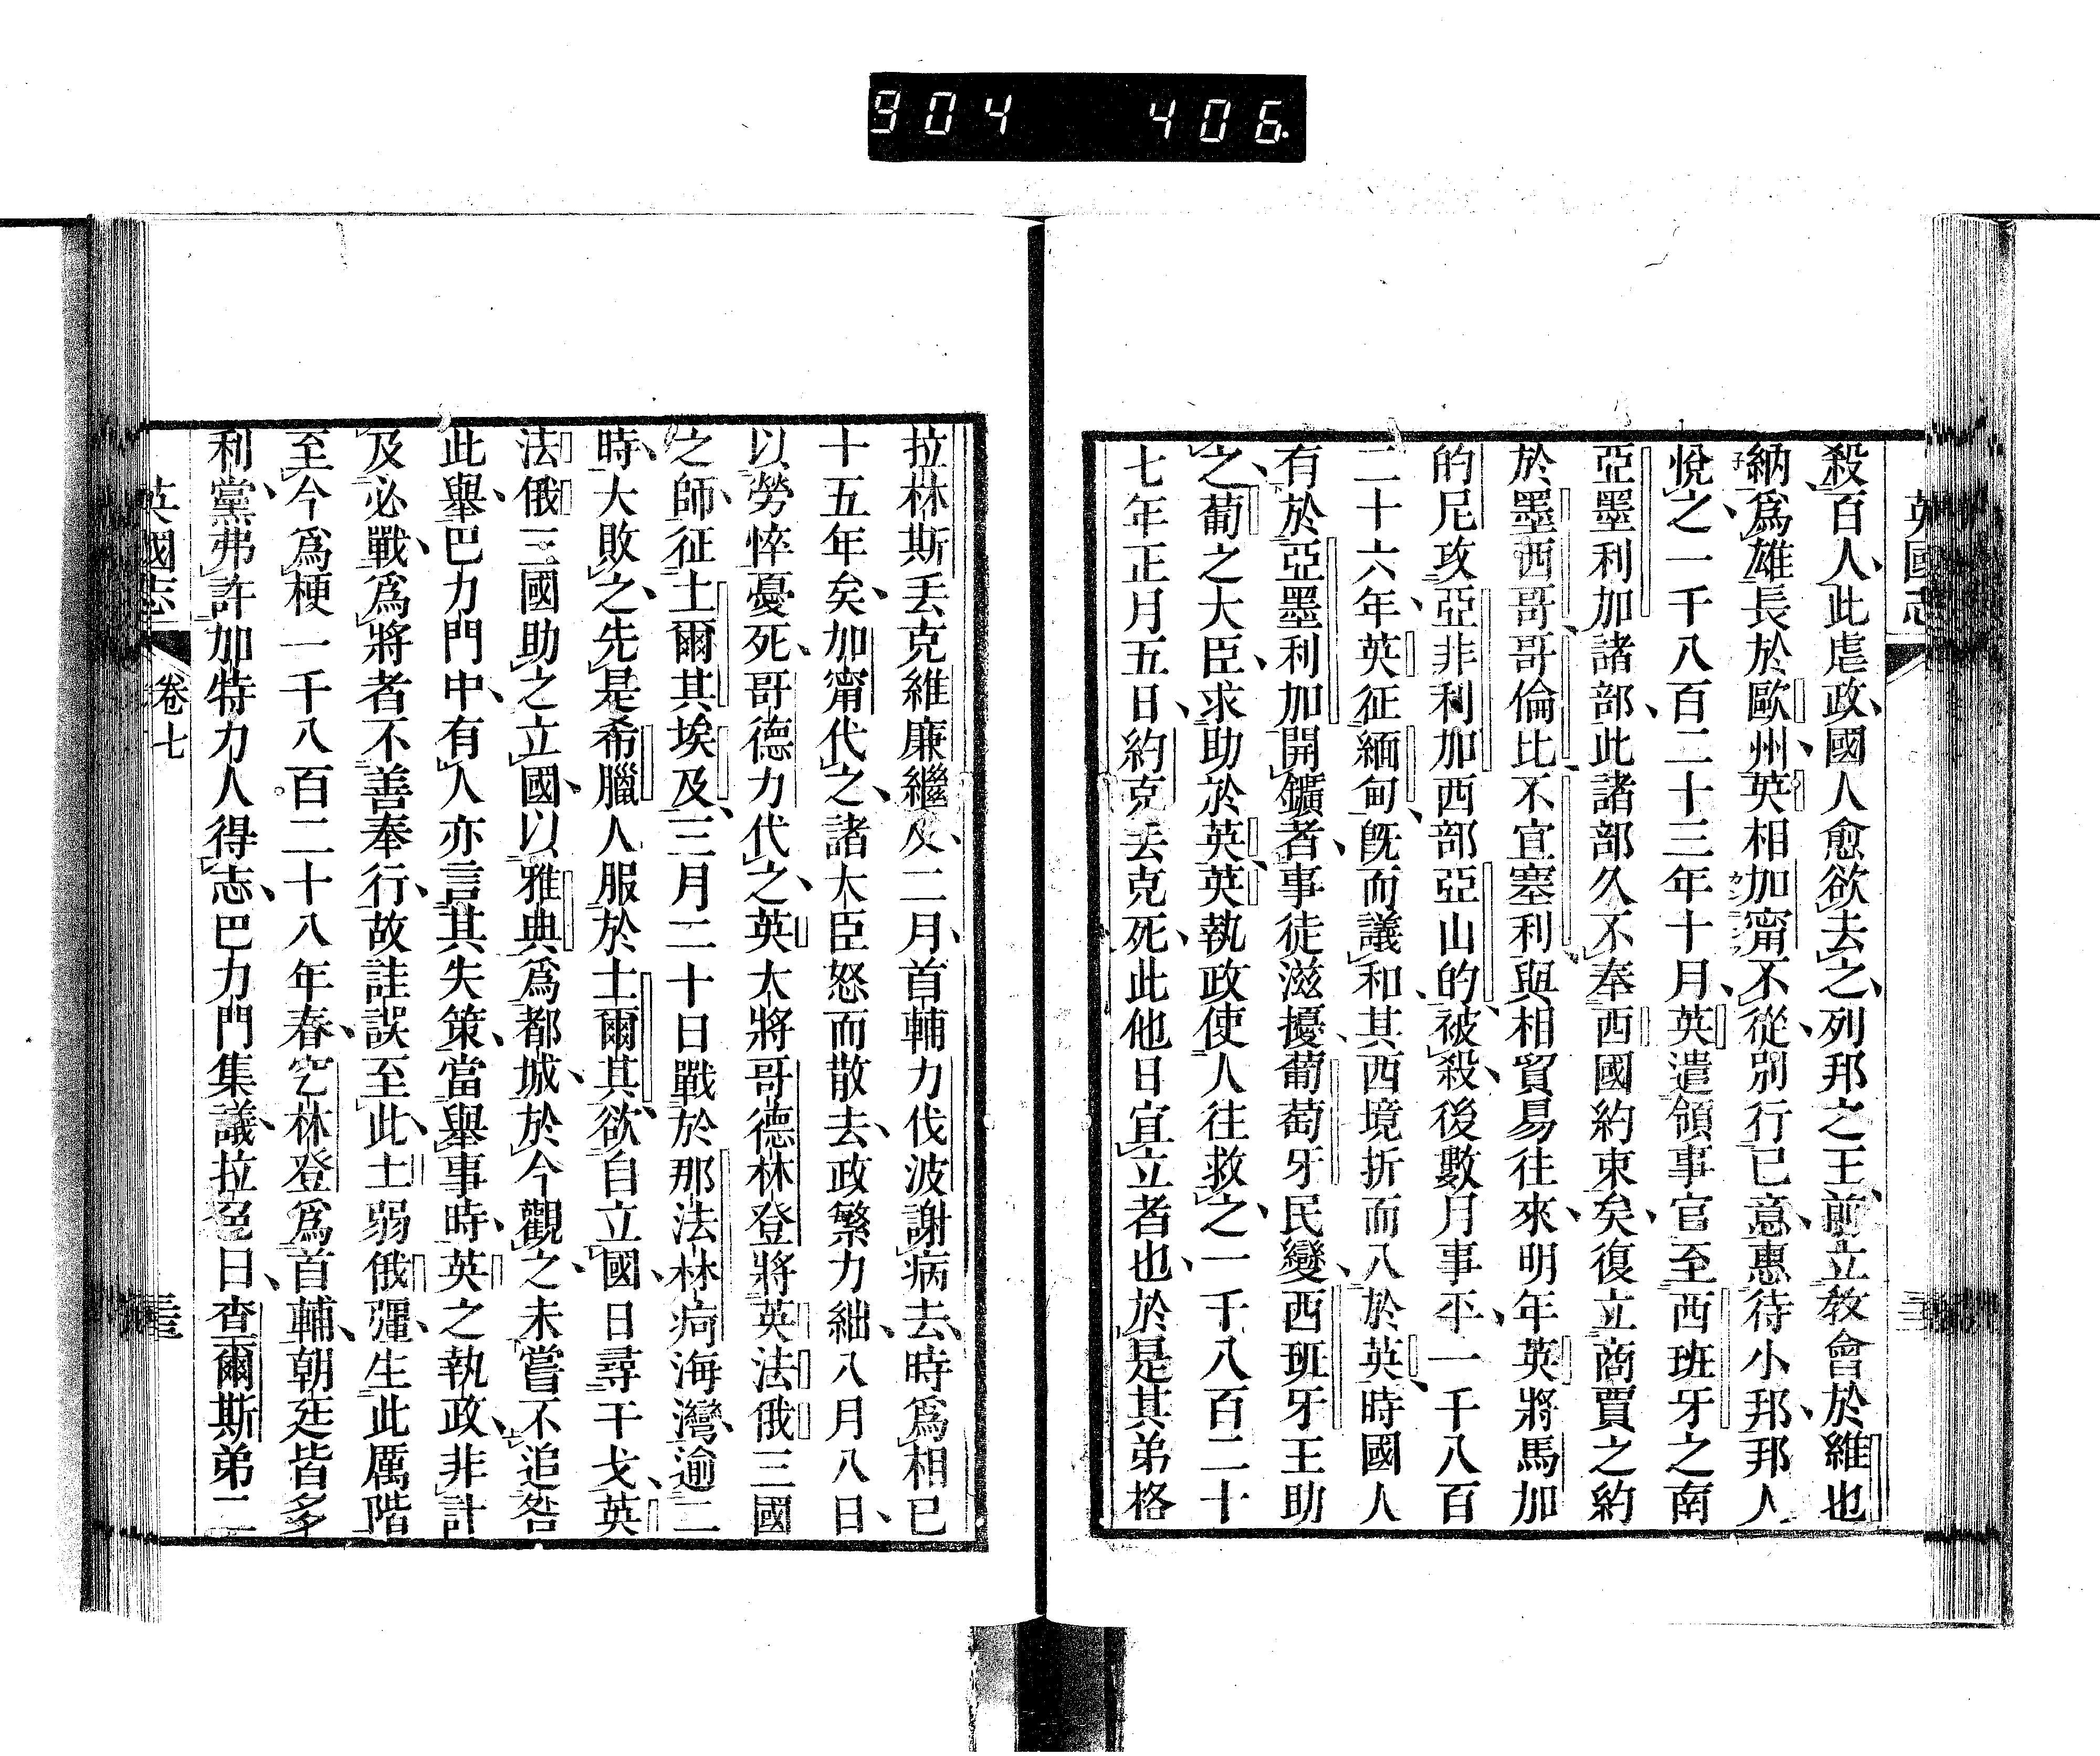 904 406
英國志
殺百人、此虐政、國人愈欲去之、列邦之王、前立教會於維也
納、爲雄長於歐州、英相加甯不從、別行己意、惠待小邦、邦人
悅之、一千八百二十三年十月、英遣領事官至西班牙之南
亞墨利加諸部、此諸部久不奉西國約束矣、復立商賈之約
於墨西哥、哥倫比、不宜塞利、與相貿易往來、明年英將馬加
的尼攻亞非利加西部亞山的、被殺、後數月事平、一千八百
二十六年、英征緬甸、旣而議和、其西境折而入於英、時國人
有於亞墨利加開鑛者、事徒滋擾、葡萄牙民變、西班牙王助
之、葡之大臣、求助於英、英執政使人往救之、一千八百二十
七年正月五日、約克丢克死、此他日宜立者也、於是其弟格
拉林斯丢克維廉繼及、二月、首輔力伐波謝病去、時爲相已
十五年矣、加甯代之、諸大臣怒而散去、政繁力絀、八月八日、
以勞悴憂死、哥德力代之、英大將哥德林登將英法俄三國
之師、征土爾其埃及、三月二十日戰於那法林痾海灣、逾二
時、大敗之、先是希臘人服於土爾其、欲自立國、日尋干戈、英
法俄三國助之立國、以雅典爲都城、於今觀之、未嘗不追咎
此舉、巴力門中、有人亦言其失策、當舉事時、英之執政、非計
及必戰、爲將者不善奉行、故詿誤至此、土弱俄彊、生此厲階
至今爲梗、一千八百二十八年春、空林登爲首輔、朝廷皆多
利黨、弗許加特力人得志、巴力門集議、拉色曰、查爾斯弟二
英國志 卷七